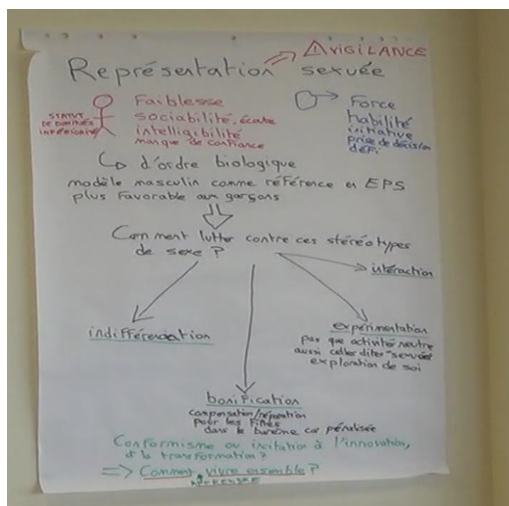 ⚠ VIGILANCE
Représentation sexuée
STATUT
DE DOMINÉS
INFÉRIORITÉ
Faiblesse
sociabilité, écoute
intelligibilité
manque de confiance
Force
habilité
initiative
prise de décision
défi
d'ordre biologique
modèle masculin comme référence en EPS
plus favorable aux garçons
Comment lutter contre ces stéréotypes
de sexe ?
intéraction
indifférenciation
expérimentation
pas que activité neutre
aussi celles dites "sexuées"
exploration de soi
bonification
compensation/réparation
pour les filles
dans le barème car pénalisée
Conformisme ou incitation à l'innovation,
et la transformation ?
=> Comment vivre ensemble ?
APPRENDRE